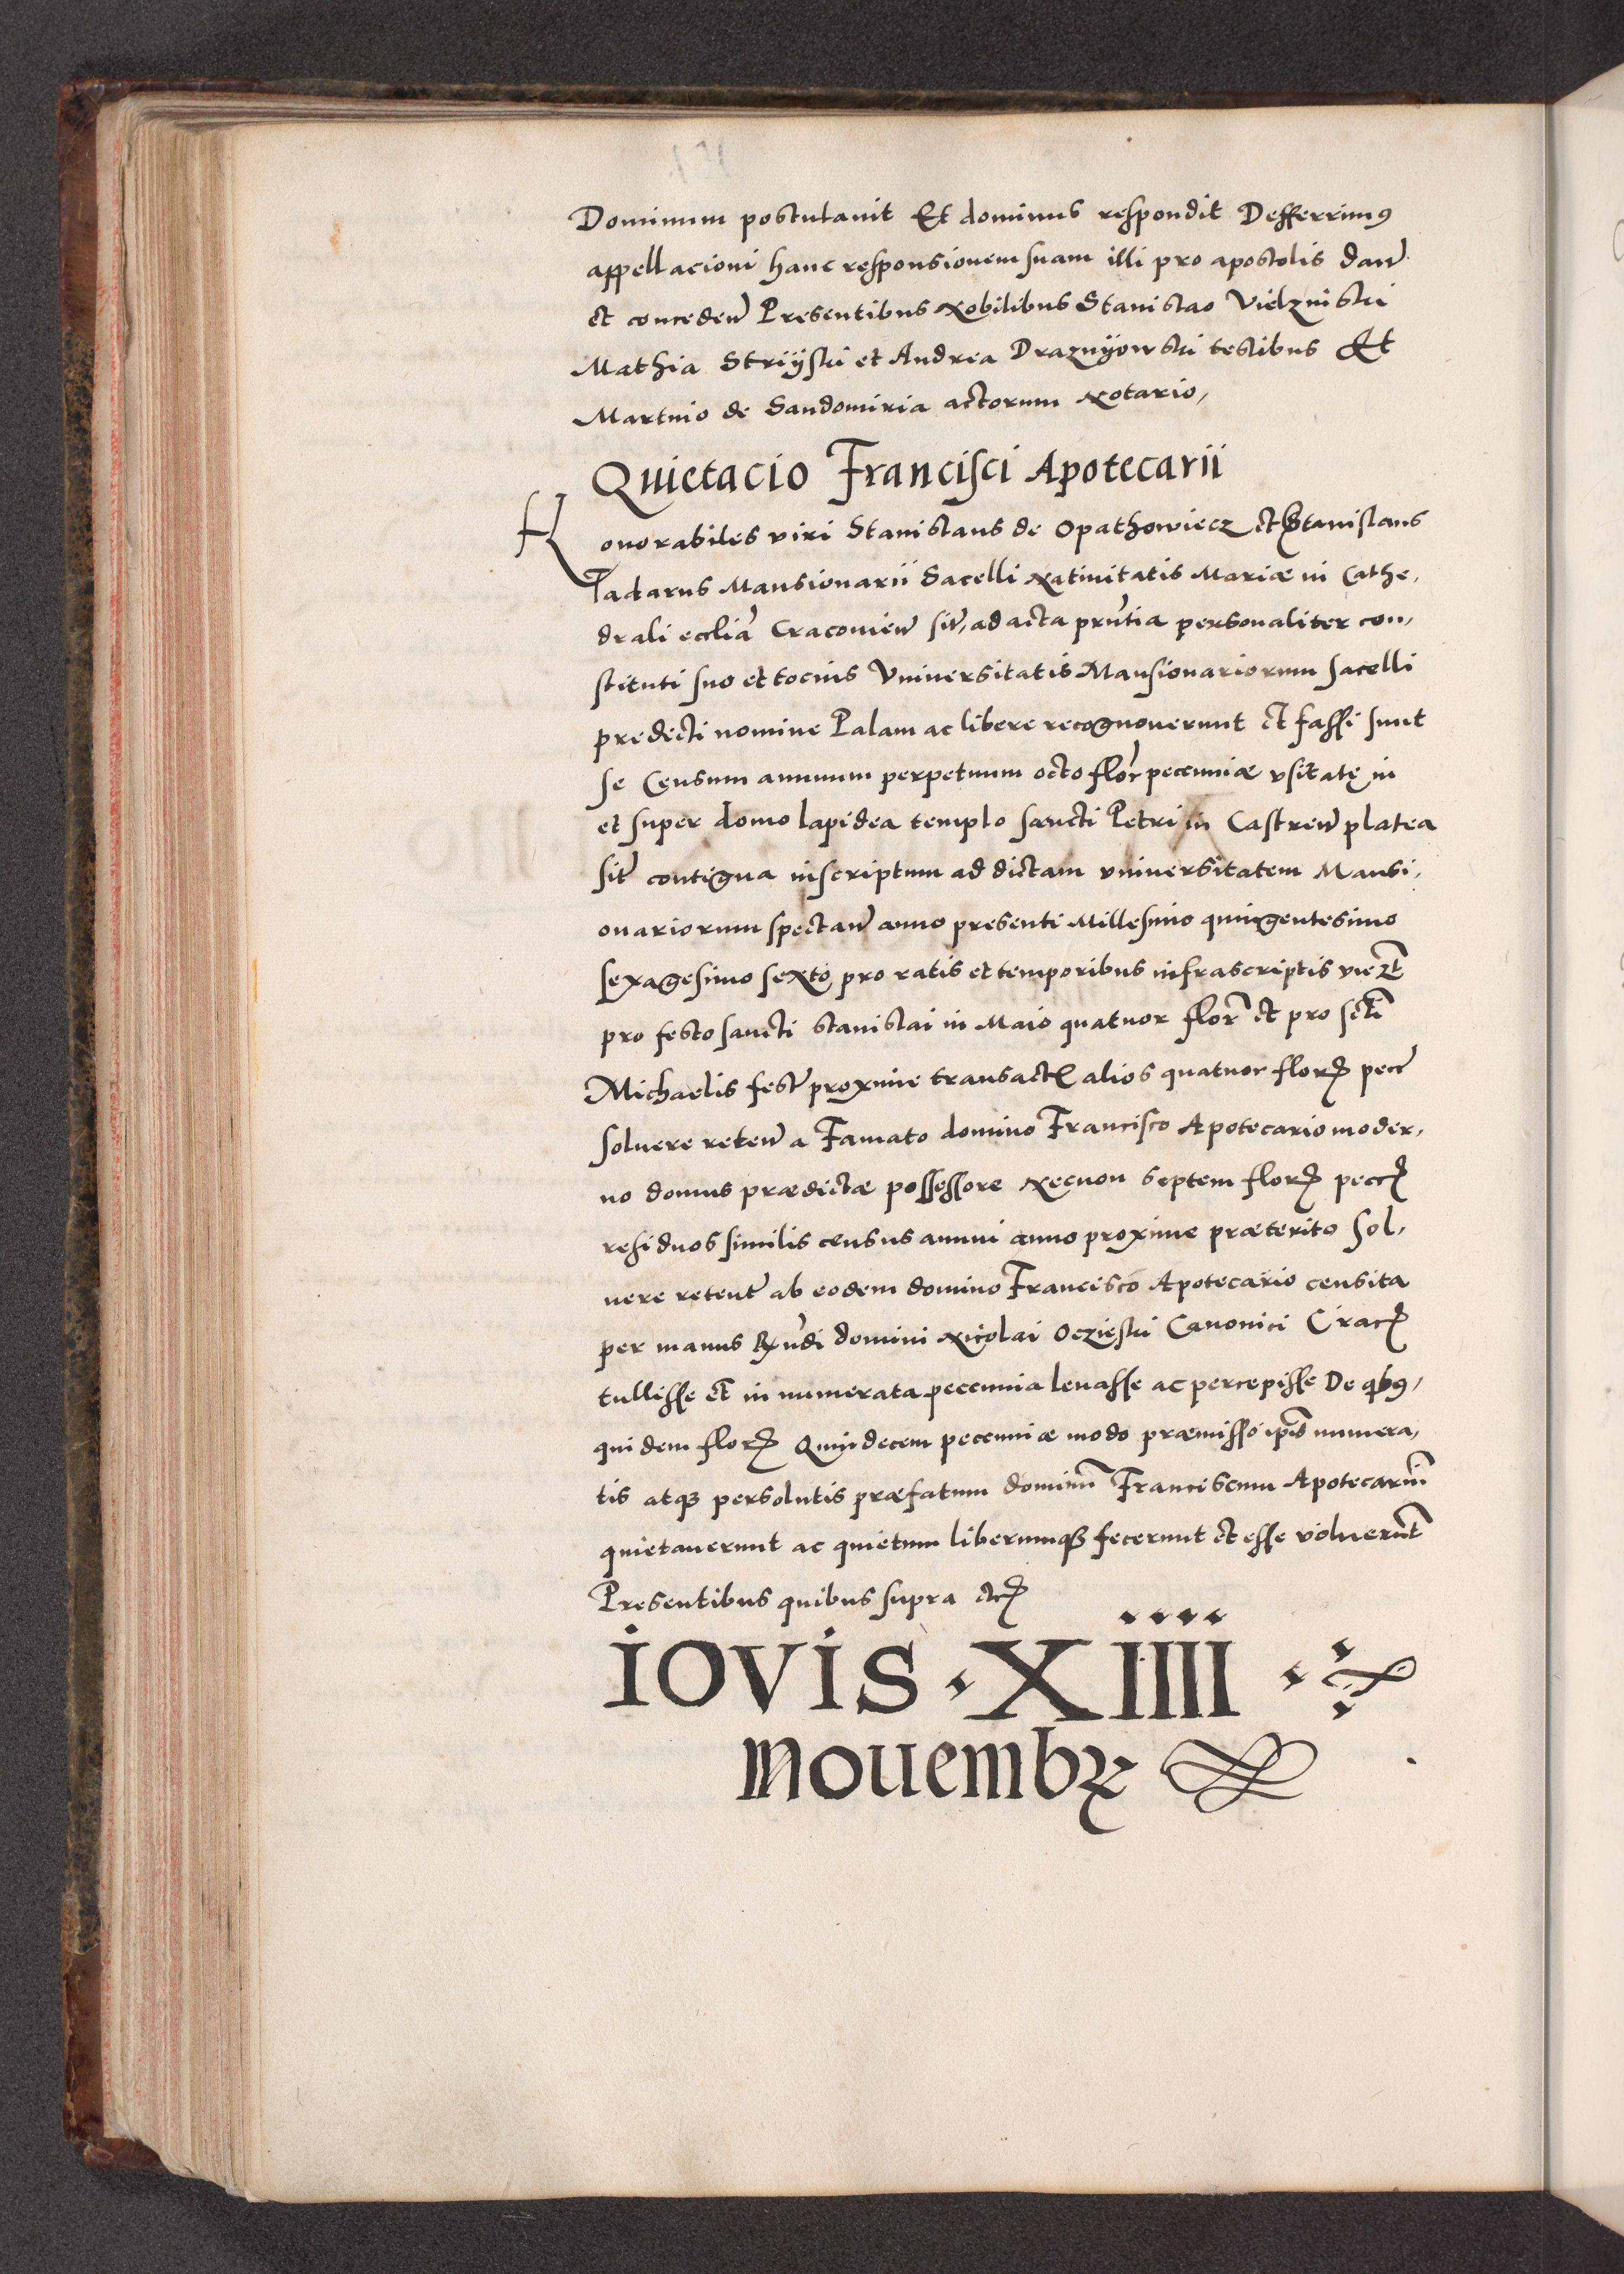 Dominum postulavit Et dominus respondit Defferrimus
appellacioni hanc responsionem suam illi pro apostolis dan̄
et conceden̄ Presentibus Nobilibus Stanislao Vielzniski
Mathia Strÿski et Andrea Draznÿowski testibus Et
Martino de Sandomiria actorum Notario,
Quietacio Francisci Apotecarii
Honorabiles viri Stanislaus de Opathowiecz et Stanislaus
Padarus Mansionarii Sacelli Nativitatis Mariæ in Cathe,
drali eccliā Cracovien̄ sit̄, ad acta prn̄tia personaliter con,
stituti suo et tocius Vniversitatis Mansionariorum sacelli
predicti nomine Palam ac libere recognoverunt et fassi sunt
se Censum annuum perpetuum octo flor̄ pecuniæ vsitatę in
et super domo lapidea templo sancti Petri in Castren̄ platea
sit̄ contigua inscriptum ad dictam vniversitatem Mansi,
onariorum spectan̄ anno presenti Millesimo quingentesimo
sexagesimo sexto pro ratis et temporibus infrascriptis viczt̄
pro festo sancti Stanislai in Maio quatuor flor̄ et pro scti̅
Michaelis fest̄ proxime transact̄ alios quatuor flor̄ pecc̄
soluere reten̄ a Famato domino Francisco Apotecario moder,
no domus prædictæ possessore Necnon septem flor̄ pecc̄
residuos similis census annui anno proxime præterito sol,
uere retent̄ ab eodem domino Francisco Apotecario censita
per manus Rn̄di domini Nicolai Oczieski Canonici Crac̄
tullisse et in numerata peccunia levasse ac percepisse De qbus,
quidem flor̄ Quindecem pecuniæ modo præmisso ipi̅s numera,
tis atqȝ persolutis præfatum dominū Franciscum Apotecariū
quietaverunt ac quietum liberumqȝ fecerunt et esse voluerūt
Presentibus quibus supra etc̄
iovis · Xiiii ·
Nouembʀ